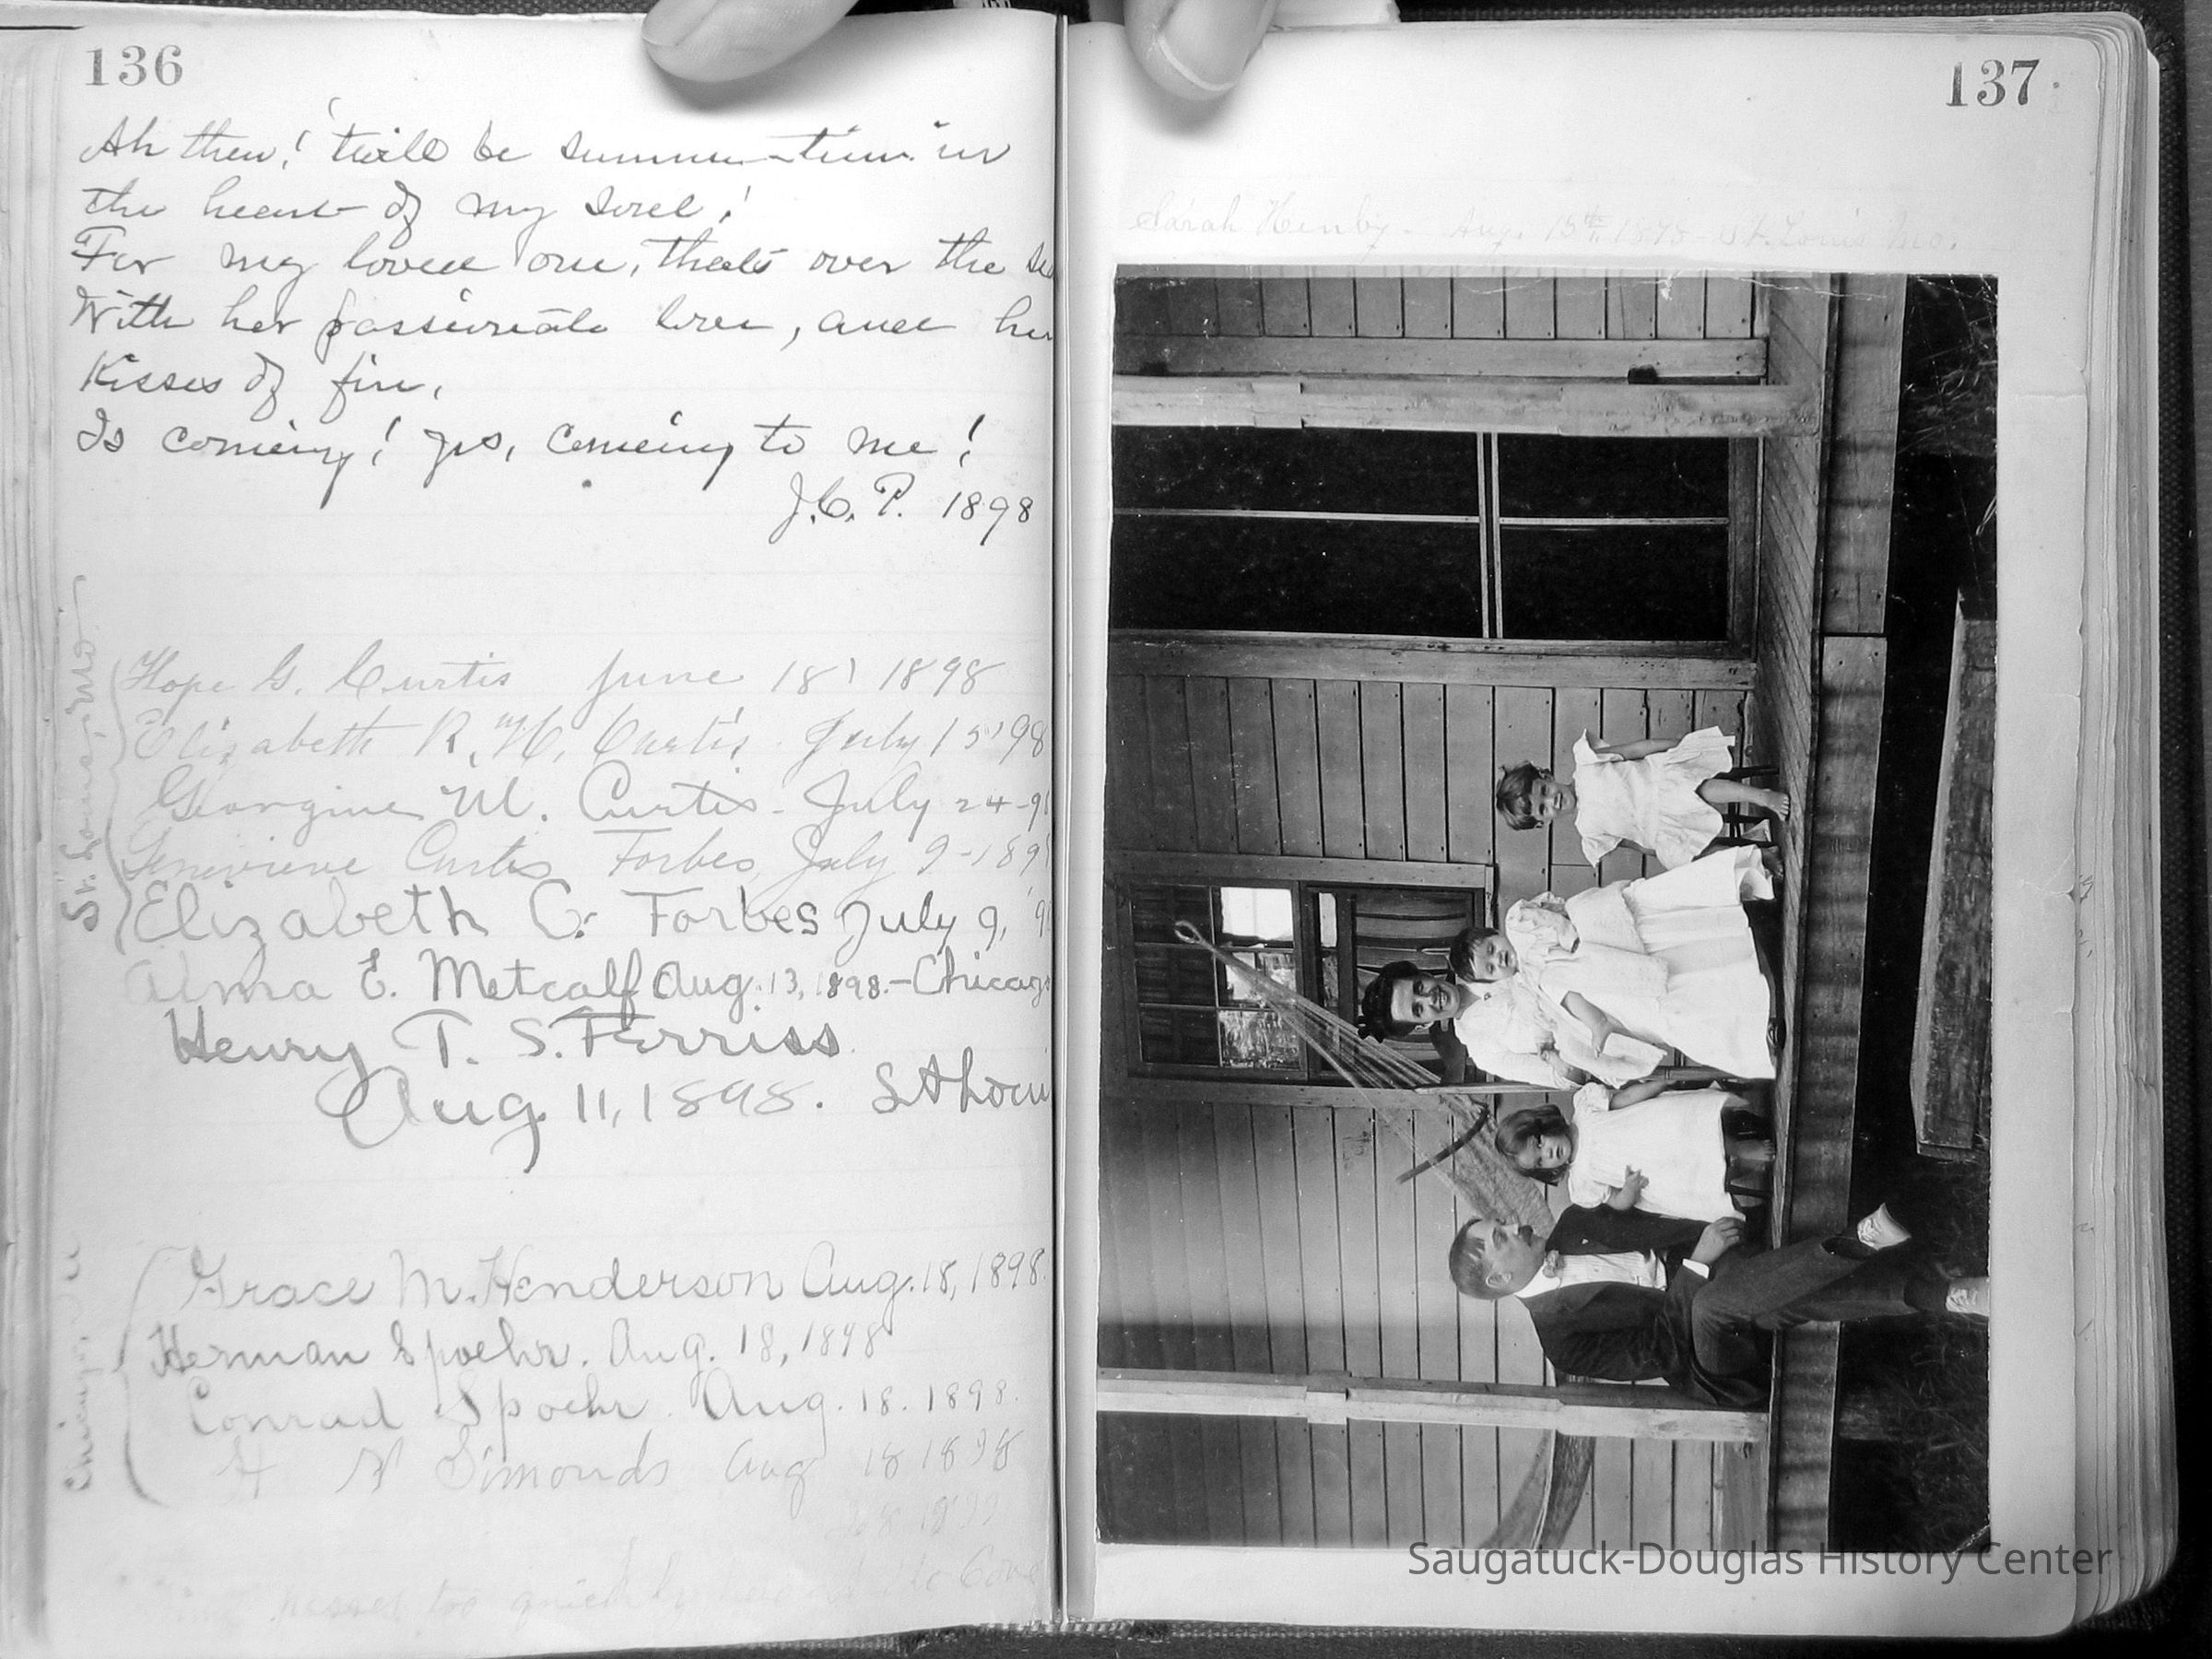 136
Ah then! 'twill be summer-time in
the heart of my soul!
For my loved one, thats over the
With her passionate love, and her
Kisses of fire,
Is coming! yes, coming to me!
J.C.P. 1898
St. Louis, Mo.
Hope G. Curtis June 18' 1898
Elizabeth R. Mc. Curtis. July 15' 98
Georgine M. Curtis - July 24-9
Genevieve Curtis Forbes, July 9-189
Elizabeth C. Forbes July 9, '9
Alma E. Metcalf Aug. 13, 1898.-Chicago
Henry T. S. Ferriss
Aug. 11, 1898. St Loui
Chicago,
Grace M. Henderson Aug. 18, 1898.
Herman Spoehr. Aug. 18, 1898
Conrad Spoehr. Aug. 18. 1898.
H N Simonds Aug 18 1898
passed too quickly
137
Sarah Henby - Aug. 15th, 1898 - St. Louis Mo.
Saugatuck-Douglas History Center